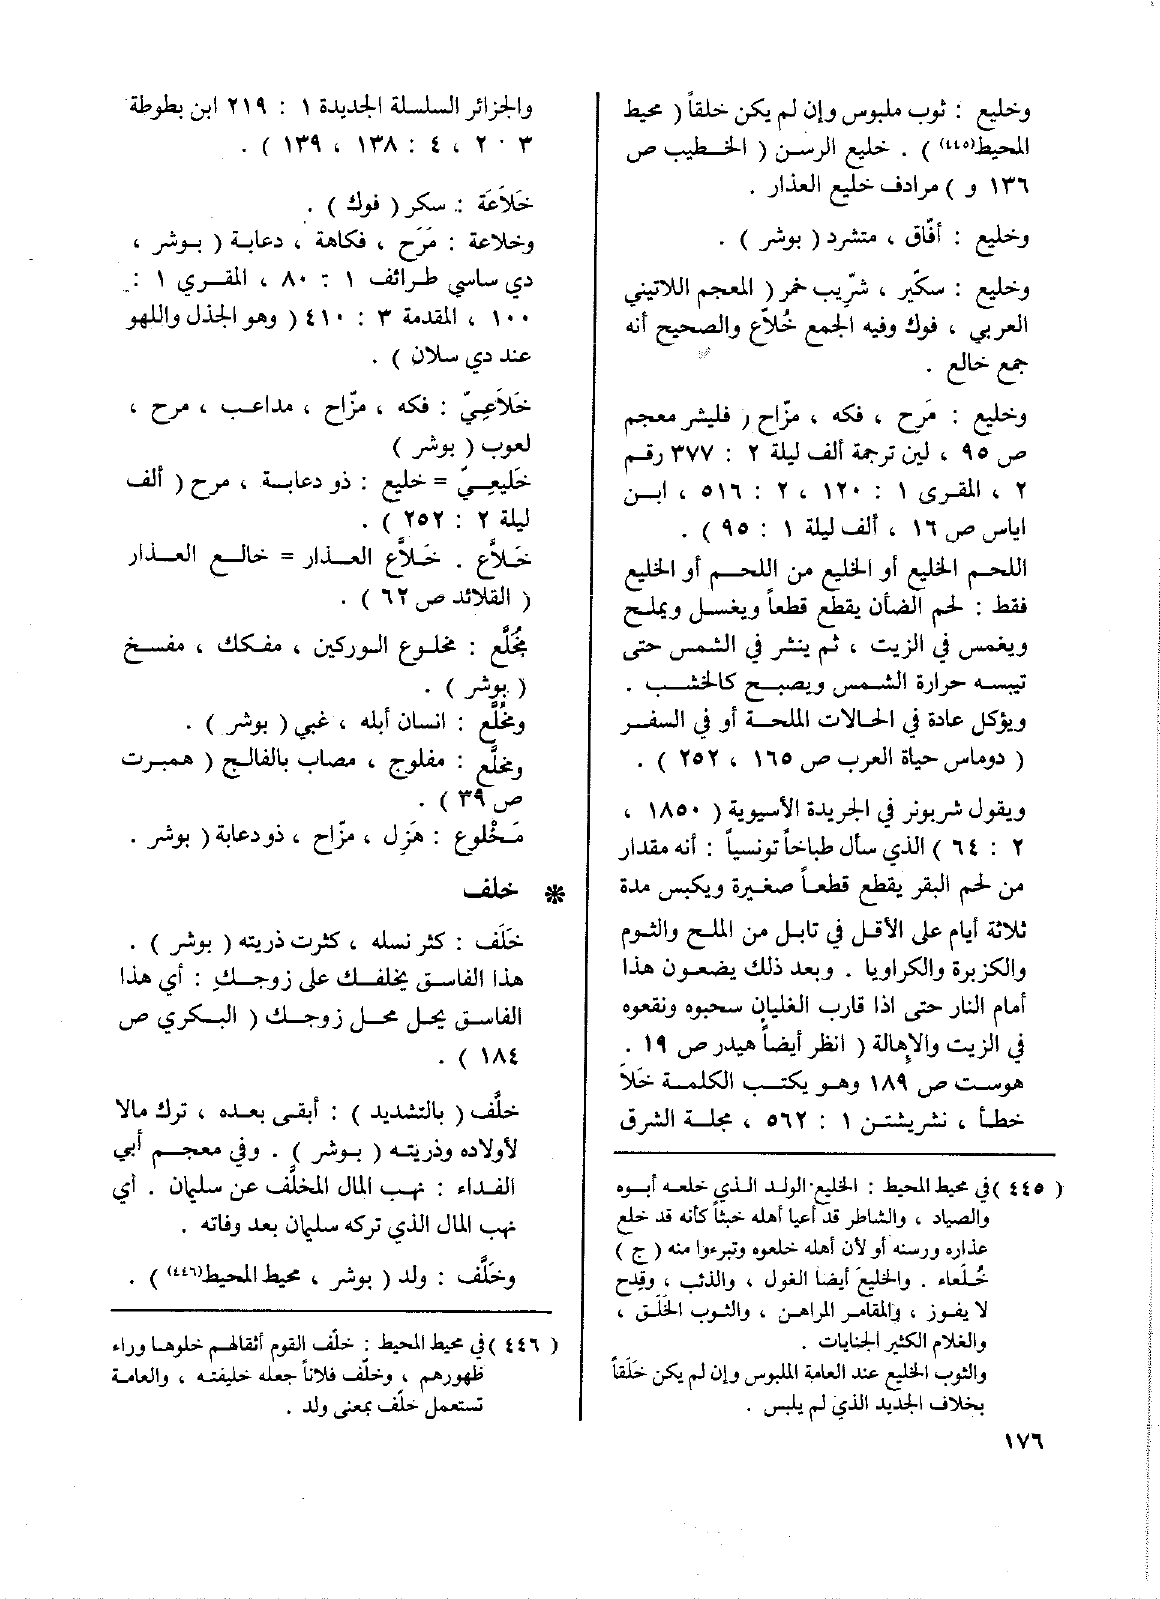 وخليع : ثوب ملبوس وإن لم يكن خلقاً ( محيط
المحيط(٤٤٥) ) . خليع الرسن ( الخطيب ص
١٣٦ و ) مرادف خليع العذار .
وخليع : أفّاق ، متشرد ( بوشر ) .
وخليع : سكّير ، شرّيب خمر ( المعجم اللاتيني
العربي ، فوك وفيه الجمع خُلاّع والصحيح أنه
جمع خالع .
وخليع : مَرِح ، فكه ، مزّاح ( فليشر معجم
ص ٩٥ ، لين ترجمة ألف ليلة ٢ : ٣٧٧ رقم
٢ ، المقرى ١ : ١٢٠ ، ٢ : ٥١٦ ، ابن
اياس ص ١٦ ، ألف ليلة ١ : ٩٥ ) .
اللحم الخليع أو الخليع من اللحم أو الخليع
فقط : لحم الضأن يقطع قطعاً ويغسل ويملح
ويغمس في الزيت ، ثم ينشر في الشمس حتى
تيبسه حرارة الشمس ويصبح كالخشب .
ويؤكل عادة في الحالات الملحة أو في السفر
( دوماس حياة العرب ص ١٦٥ ، ٢٥٢ ) .
ويقول شربونر في الجريدة الأسيوية ( ١٨٥٠ ،
٢ : ٦٤ ) الذي سأل طباخاً تونسياً : أنه مقدار
من لحم البقر يقطع قطعاً صغيرة ويكبس مدة
ثلاثة أيام على الأقل في تابل من الملح والثوم
والكزبرة والكراويا . وبعد ذلك يضعون هذا
أمام النار حتى اذا قارب الغليان سحبوه ونقعوه
في الزيت والإهالة ( انظر أيضاً هيدر ص ١٩ .
هوست ص ١٨٩ وهو يكتب الكلمة خَلاَ
خطأ ، نشريشتن ١ : ٥٦٢ ، مجلة الشرق
( ٤٤٥ ) في محيط المحيط : الخليع الولد الذي خلعه أبوه
والصياد ، والشاطر قد أعيا أهله خبثاً كأنه قد خلع
عذاره ورسنه أو لأن أهله خلعوه وتبرءوا منه ( ج )
خُلَعاء . والخليع أيضا الغول ، والذئب ، وقِدح
لا يفوز ، والمقامر المراهن ، والثوب الخَلَق ،
والغلام الكثير الجنايات .
والثوب الخليع عند العامة الملبوس وإن لم يكن خَلَقاً
بخلاف الجديد الذي لم يلبس .
١٧٦
والجزائر السلسلة الجديدة ١ : ٢١٩ ابن بطوطة
٣ ٢٠ ، ٤ : ١٣٨ ، ١٣٩ ) .
خَلاَعَة : سكر ( فوك ) .
وخلاعة : مَرَح ، فكاهة ، دعابة ( بوشر ،
دي ساسي طرائف ١ : ٨٠ ، المقري ١ :
١٠٠ ، المقدمة ٣ : ٤١٠ ( وهو الجذل واللهو
عند دي سلان ) .
خَلاَعِيّ : فكه ، مزّاح ، مداعب ، مرح ،
لعوب ( بوشر )
خَليعِيّ = خليع : ذو دعابة ، مرح ( ألف
ليلة ٢ : ٢٥٢ ) .
خَلاَّع . خَلاَّع العذار = خالع العذار
( القلائد ص ٦٢ ) .
مُخَلَّع : مخلوع الوركين ، مفكك ، مفسخ
( بوشر ) .
ومُخَلَّع : انسان أبله ، غبي ( بوشر ) .
ومخلَّع : مفلوج ، مصاب بالفالج ( همبرت
ص ٣٩ ) .
مَخْلوع : هَزِل ، مزّاح ، ذو دعابة ( بوشر .
* خلف
خَلَف : كثر نسله ، كثرت ذريته ( بوشر ) .
هذا الفاسق يخلفك على زوجك : أي هذا
الفاسق يحل محل زوجك ( البكري ص
١٨٤ ) .
خلَّف ( بالتشديد ) : أبقى بعده ، ترك مالا
لأولاده وذريته ( بوشر ) . وفي معجم أبي
الفداء : نهب المال المخلَّف عن سليمان . أي
نهب المال الذي تركه سليمان بعد وفاته .
وخلَّف : ولد ( بوشر ، محيط المحيط(٤٤٦) ) .
( ٤٤٦ ) في محيط المحيط : خلّف القوم أثقالهم خلوها وراء
ظهورهم ، وخلّف فلاناً جعله خليفته ، والعامة
تستعمل خلَّف بمعنى ولد .